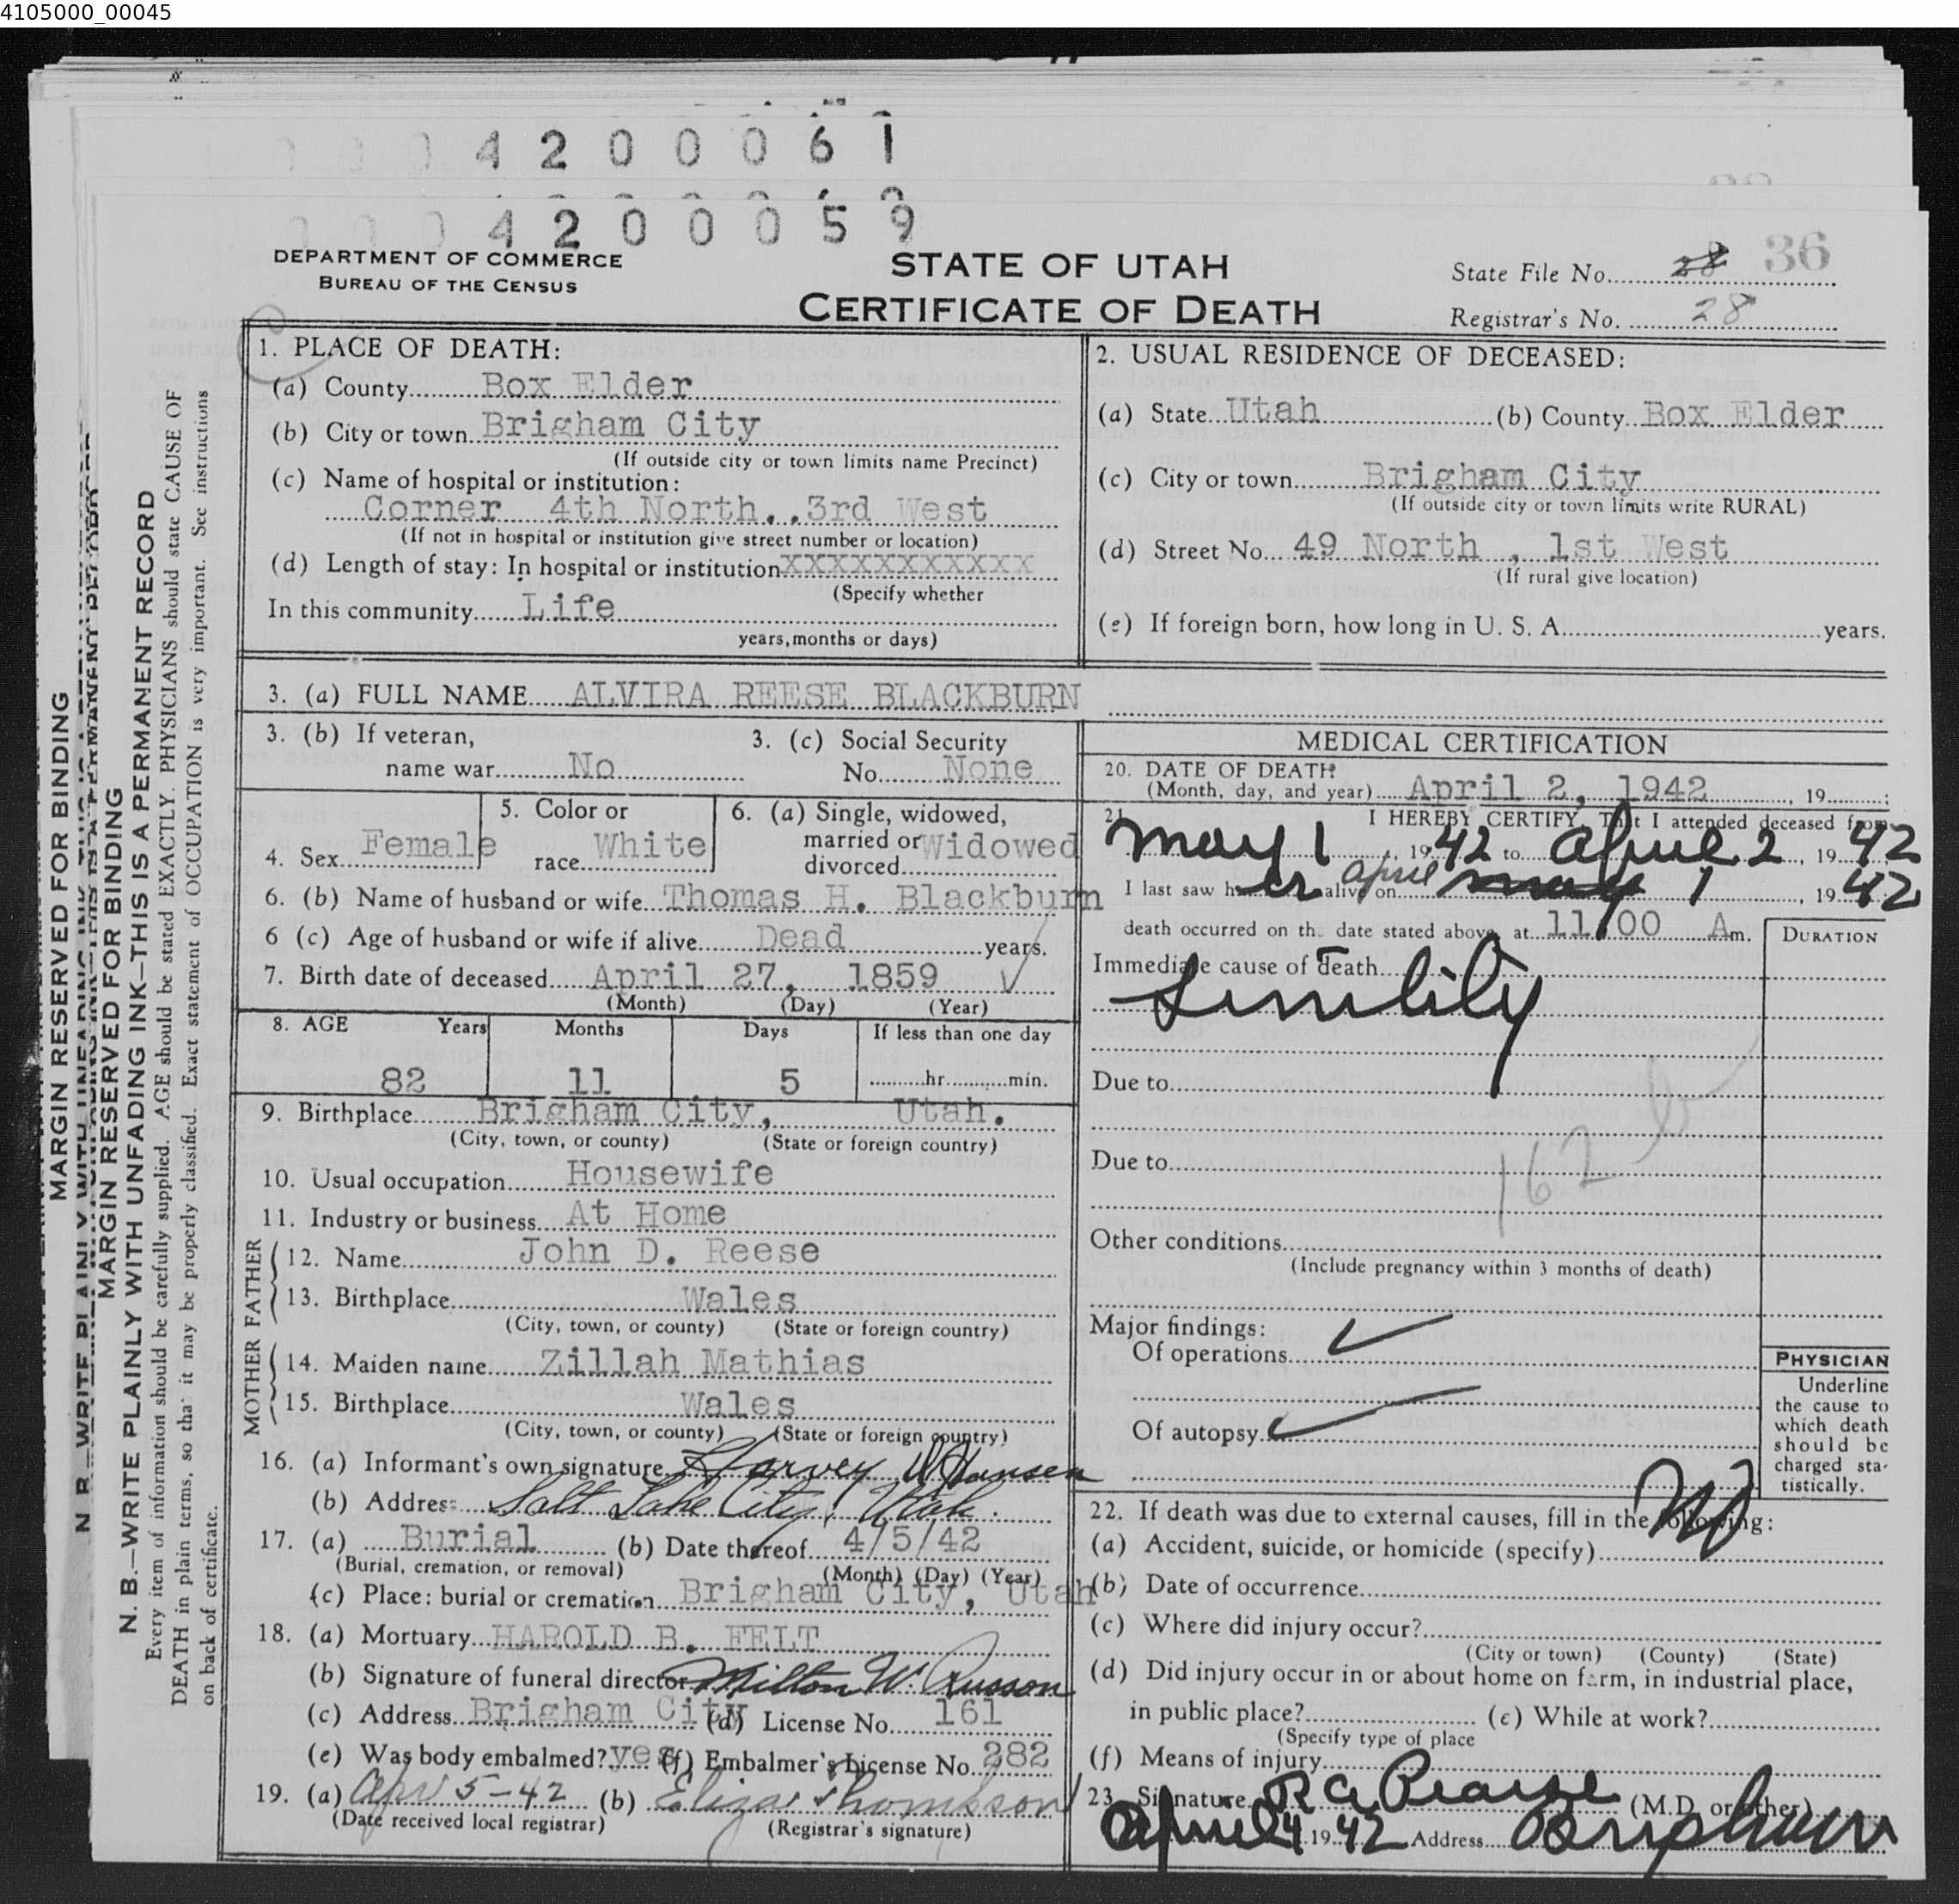 4105000_00045
4200061
4200059
DEPARTMENT OF COMMERCE
BUREAU OF THE CENSUS
STATE OF UTAH
CERTIFICATE OF DEATH
State File No. 28 36
Registrar's No. 28
MARGIN RESERVED FOR BINDING
MARGIN RESERVED FOR BINDING
N. B.—WRITE PLAINLY WITH UNFADING INK—THIS IS A PERMANENT RECORD
Every item of information should be carefully supplied. AGE should be stated EXACTLY. PHYSICIANS should state CAUSE OF
DEATH in plain terms, so that it may be properly classified. Exact statement of OCCUPATION is very important. See instructions
on back of certificate.
1. PLACE OF DEATH:
(a) County Box Elder
(b) City or town Brigham City
(If outside city or town limits name Precinct)
(c) Name of hospital or institution:
Corner 4th North, .3rd West
(If not in hospital or institution give street number or location)
(d) Length of stay: In hospital or institution XXXXXXXXXXX
(Specify whether
In this community Life
years, months or days)
2. USUAL RESIDENCE OF DECEASED:
(a) State Utah (b) County Box Elder
(c) City or town Brigham City
(If outside city or town limits write RURAL)
(d) Street No. 49 North , 1st West
(If rural give location)
(e) If foreign born, how long in U. S. A. years.
3. (a) FULL NAME ALVIRA REESE BLACKBURN
3. (b) If veteran,
name war No
3. (c) Social Security
No. None
4. Sex Female
5. Color or
race White
6. (a) Single, widowed,
married or
divorced Widowed
6. (b) Name of husband or wife Thomas H. Blackburn
6 (c) Age of husband or wife if alive Dead years.
7. Birth date of deceased April 27, 1859 ✓
(Month) (Day) (Year)
8. AGE Years Months Days If less than one day
82 11 5 hr. min.
9. Birthplace Brigham City, Utah.
(City, town, or county) (State or foreign country)
10. Usual occupation Housewife
11. Industry or business At Home
FATHER
12. Name John D. Reese
13. Birthplace Wales
(City, town, or county) (State or foreign country)
MOTHER
14. Maiden name Zillah Mathias
15. Birthplace Wales
(City, town, or county) (State or foreign country)
16. (a) Informant's own signature Harvey W Hansen
(b) Address Salt Lake City, Utah.
17. (a) Burial (b) Date thereof 4/5/42
(Burial, cremation, or removal) (Month) (Day) (Year)
(c) Place: burial or cremation Brigham City, Utah
18. (a) Mortuary HAROLD B. FELT
(b) Signature of funeral director Milton W. Russon
(c) Address Brigham City (d) License No. 161
(e) Was body embalmed? yes (f) Embalmer's License No. 282
19. (a) Apr 5-42 (b) Eliza Thompson
(Date received local registrar) (Registrar's signature)
MEDICAL CERTIFICATION
20. DATE OF DEATH
(Month, day, and year) April 2, 1942, 19 ;
21. I HEREBY CERTIFY, That I attended deceased from
May 1, 1942 to April 2, 1942
I last saw her alive on April May 1, 1942
death occurred on the date stated above, at 11:00 A m.
DURATION
Immediate cause of death
Sinility
Due to
Due to
162 b
Other conditions
(Include pregnancy within 3 months of death)
Major findings:
Of operations ✓
Of autopsy ✓
PHYSICIAN
Underline
the cause to
which death
should be
charged sta-
tistically.
22. If death was due to external causes, fill in the following:
(a) Accident, suicide, or homicide (specify)
(b) Date of occurrence
(c) Where did injury occur?
(City or town) (County) (State)
(d) Did injury occur in or about home on farm, in industrial place,
in public place? (e) While at work?
(Specify type of place
(f) Means of injury
23. Signature R A Pearse (M.D. or other)
April 4 1942 Address Brigham